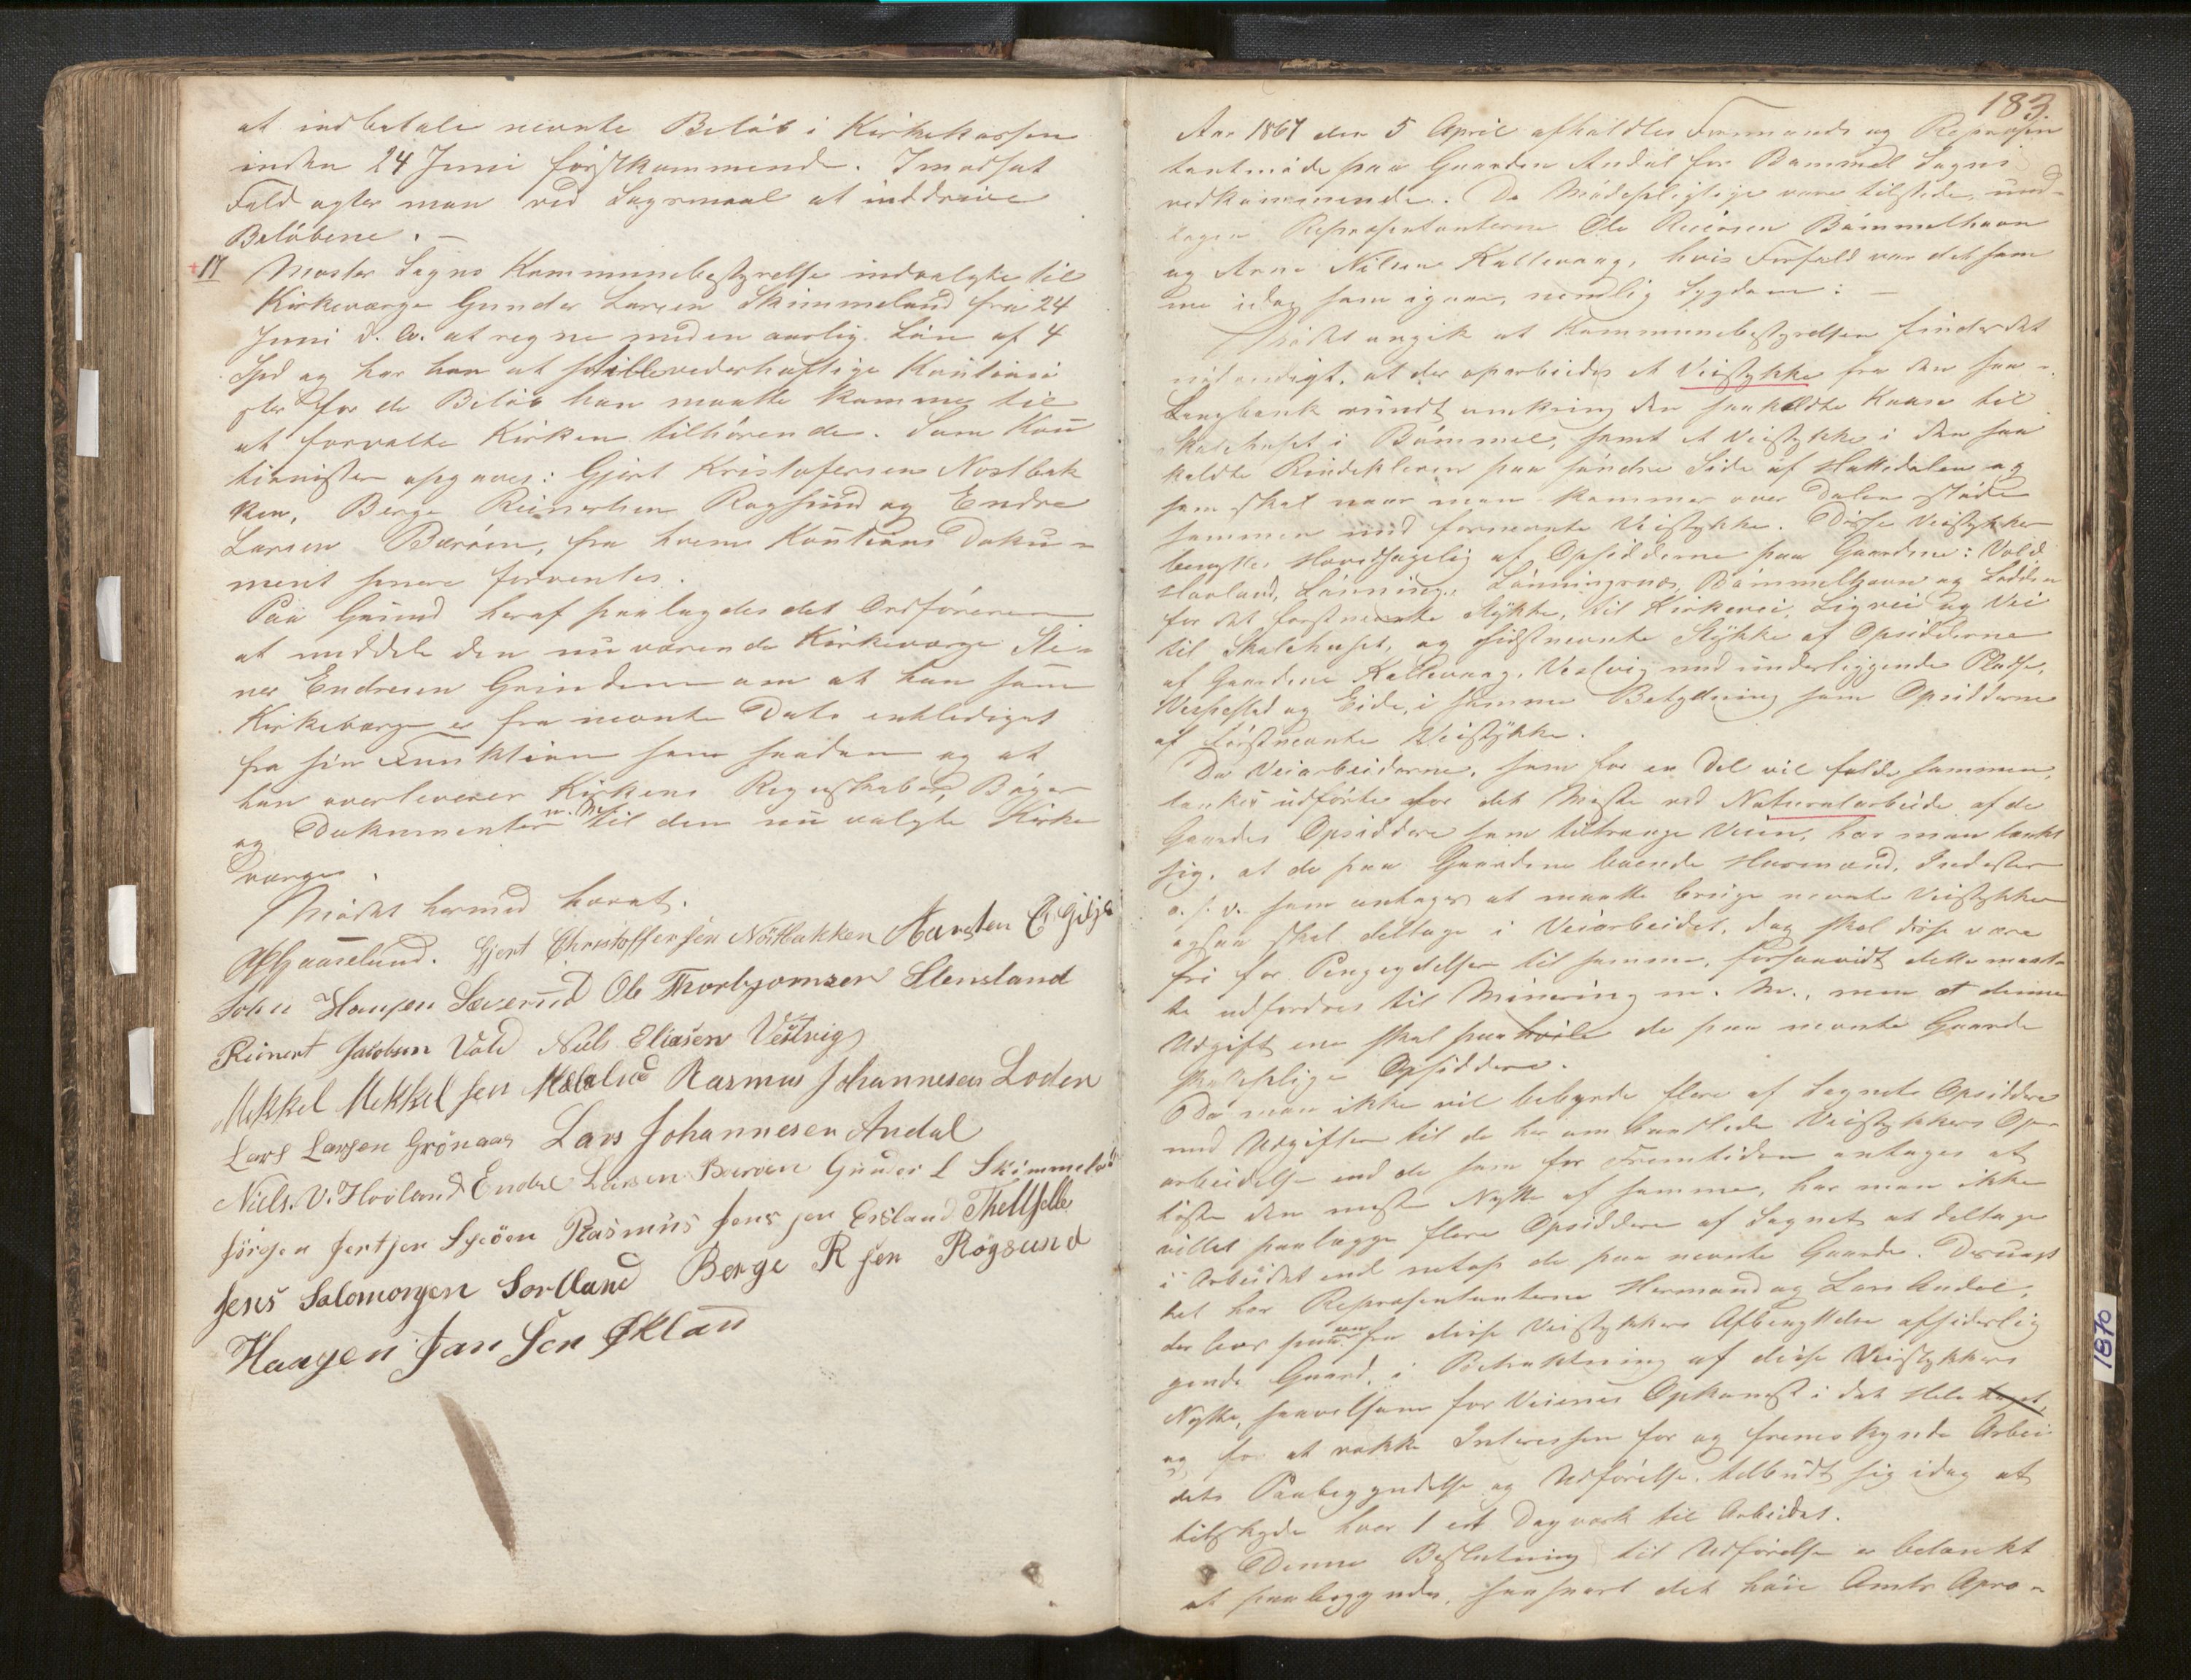 at indbetale nevnte Beløb i Kirkekassen
inden 24 Juni førstkommende. I modsat
Fald agter man ved Søgsmaal at inddrive
Beløbene. –
17 Moster Sogns Kommunebestyrelse indvalgte til
Kirkeværge Gunder Larsen Skimmeland fra 24
Juni d. A. at regne med en aarlig Løn af 4
Spd og har han at stille vederhæftige Kautioni
ster for de Beløb han maatte komme til
at forvalte Kirken tilhørende. Som Kau
tionister opgaves: Gjert Kristofersen Nostbak
ken, Berge Reinertsen Røgsund og Endre
Larsen Børøen, fra hvem Kautions Doku-
ment senere forventes.
Paa Grund heraf paalagdes det Ordføreren
at meddele den nu værende Kirkeværge Stei-
ner Endresen Grinden om at han som
Kirkeværge er fra nevnte Dato entlediget
fra sin Funktion som saadan og at
han overleverer Kirkens Regnskaber, Bøger
og Dokumenter m. M. til den nu valgte Kirke
værge.
Mødet hermed hævet.
Haaselund. Gjert Christoffersen Nöstbakken Karsten E. Gilje
John Hansen Sæverud Ole Thorbjornsen Stensland
Reinert Jakobsen Vold Niels Eliasen Vestvig
Mekkel Mekkelsen Rasmus Johannesen Loden
Lars Larsen Grönaas Lars Johannesen Andal
Niels. V. Hovland Endre Larsen Børöen Gunder L Skimmeland
Jörgen Rasmus Jensen Eisland
Jens Salomonsen Sortland Berge R sen Rögsund
Haagen Jansen Økland
183.
Aar 1867 den 5 April afholdtes Formands og Repræsen
tantmøde paa Gaarden Andal for Bømmel Sogns
vedkommende. De Mødepligtige vare tilstede, und-
tagen Repræsentanterne Ole Reiersen Bømmelhavn
og Arne Nilsen Kallevaag, hvis Forfald var det sam
me idag som igaar, nemlig Sygdom: –
Mødet angik at Kommunebestyrelsen finder det
nødvendigt, at der oparbeides et Veistykke fra den saa-
Langbank rundt omkring den saakaldte Kaase til
Skolehuset i Bømmel, samt et Veistykke i den saa
kaldte Rindekleven paa søndre Side af Hattedalen og
som skal naar man kommer over Dalen støde
sammen med fornevnte Veistykke. Disse Veistykker
benyttes Hovedsagelig af Opsidderne paa Gaardene: Vold
Hovland, Lønning, Lønningsnæs, Bømmelhavn og Lodden
for detførstnevnte Stykke, til Kirkevei, Ligvei og Vei
til Skolehuset, og sidstnevnte Stykke af Opsidderne
af Gaardene Kallevaag, Vestvig med underliggende Pladse,
Vespestad og Eide, i samme Betydning som Opsidderne
af førstnevnte Veistykke.
Da Veiarbeiderne, som for en Del vil falde sammen,
tænkes udførte for det Meste ved Naturalarbeide af de
Gaardes Opsiddere som tiltrænge Veien, har man tænkt
sig, at de paa Gaardene boende Husmænd, Inderster
o. s. v. som antages at maatte bruge nevnte Veistykker
ogsaa skal deltage i Veiarbeidet, dog skal disse være
fri for Pengeydelser til samme, forsaavidt dette maat-
te udfordres til Minering m. M., men at denne
Udgift ene skal paahvile de paa nevnte Gaarde
skatskyldige Opsiddere.
Da man ikke vil bebyrde flere af Sognets Opsiddere
med Udgifter til de her omhandlede Veistykkers Op-
arbeidelse end de som for Fremtiden antages at
høste den meste Nytte af samme, har man ikke
villet paalægge flere Opsiddere af Sognet at deltage
i Arbeidet end netop de paa nevnte Gaarde. Desuagt
tet har Repræsentanterne Hermand og Lars Andal,
der boer paa en fra disse Veistykkers Afbenyttelse afsideslig
gende Gaard, i Betraktning af disse Veistykkers
Nytte, saavelsom for Veienes Opkomst i det Hele taget,
og for at vække Interessen for og fremskynde Arbei-
dets Paabegyndelse og Udførelse, tilbudt sig idag at
tilskyde hver 1 et Dagværk til Arbeidet.
Denne Beslutning til Udførelse er betænkt
at paabegyndes, saasnart det høie Amts Apro-
1870